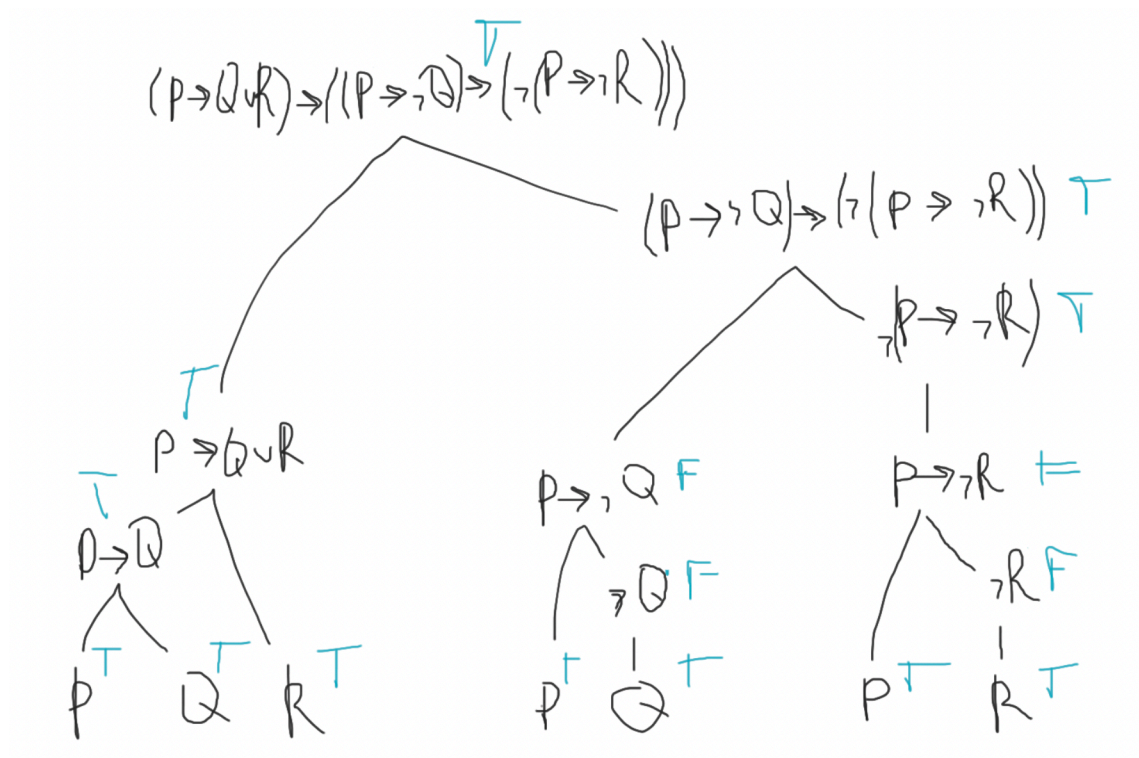 T
(P→Q∨R)→((P→¬Q)→(¬(P→¬R)))
(P→¬Q)→(¬(P→¬R)) T
¬(P→¬R) T
T
P→Q∨R
P→¬Q F
P→¬R F
T
P→Q
¬Q F
¬R F
P T Q T R T
P T Q T
P T R T